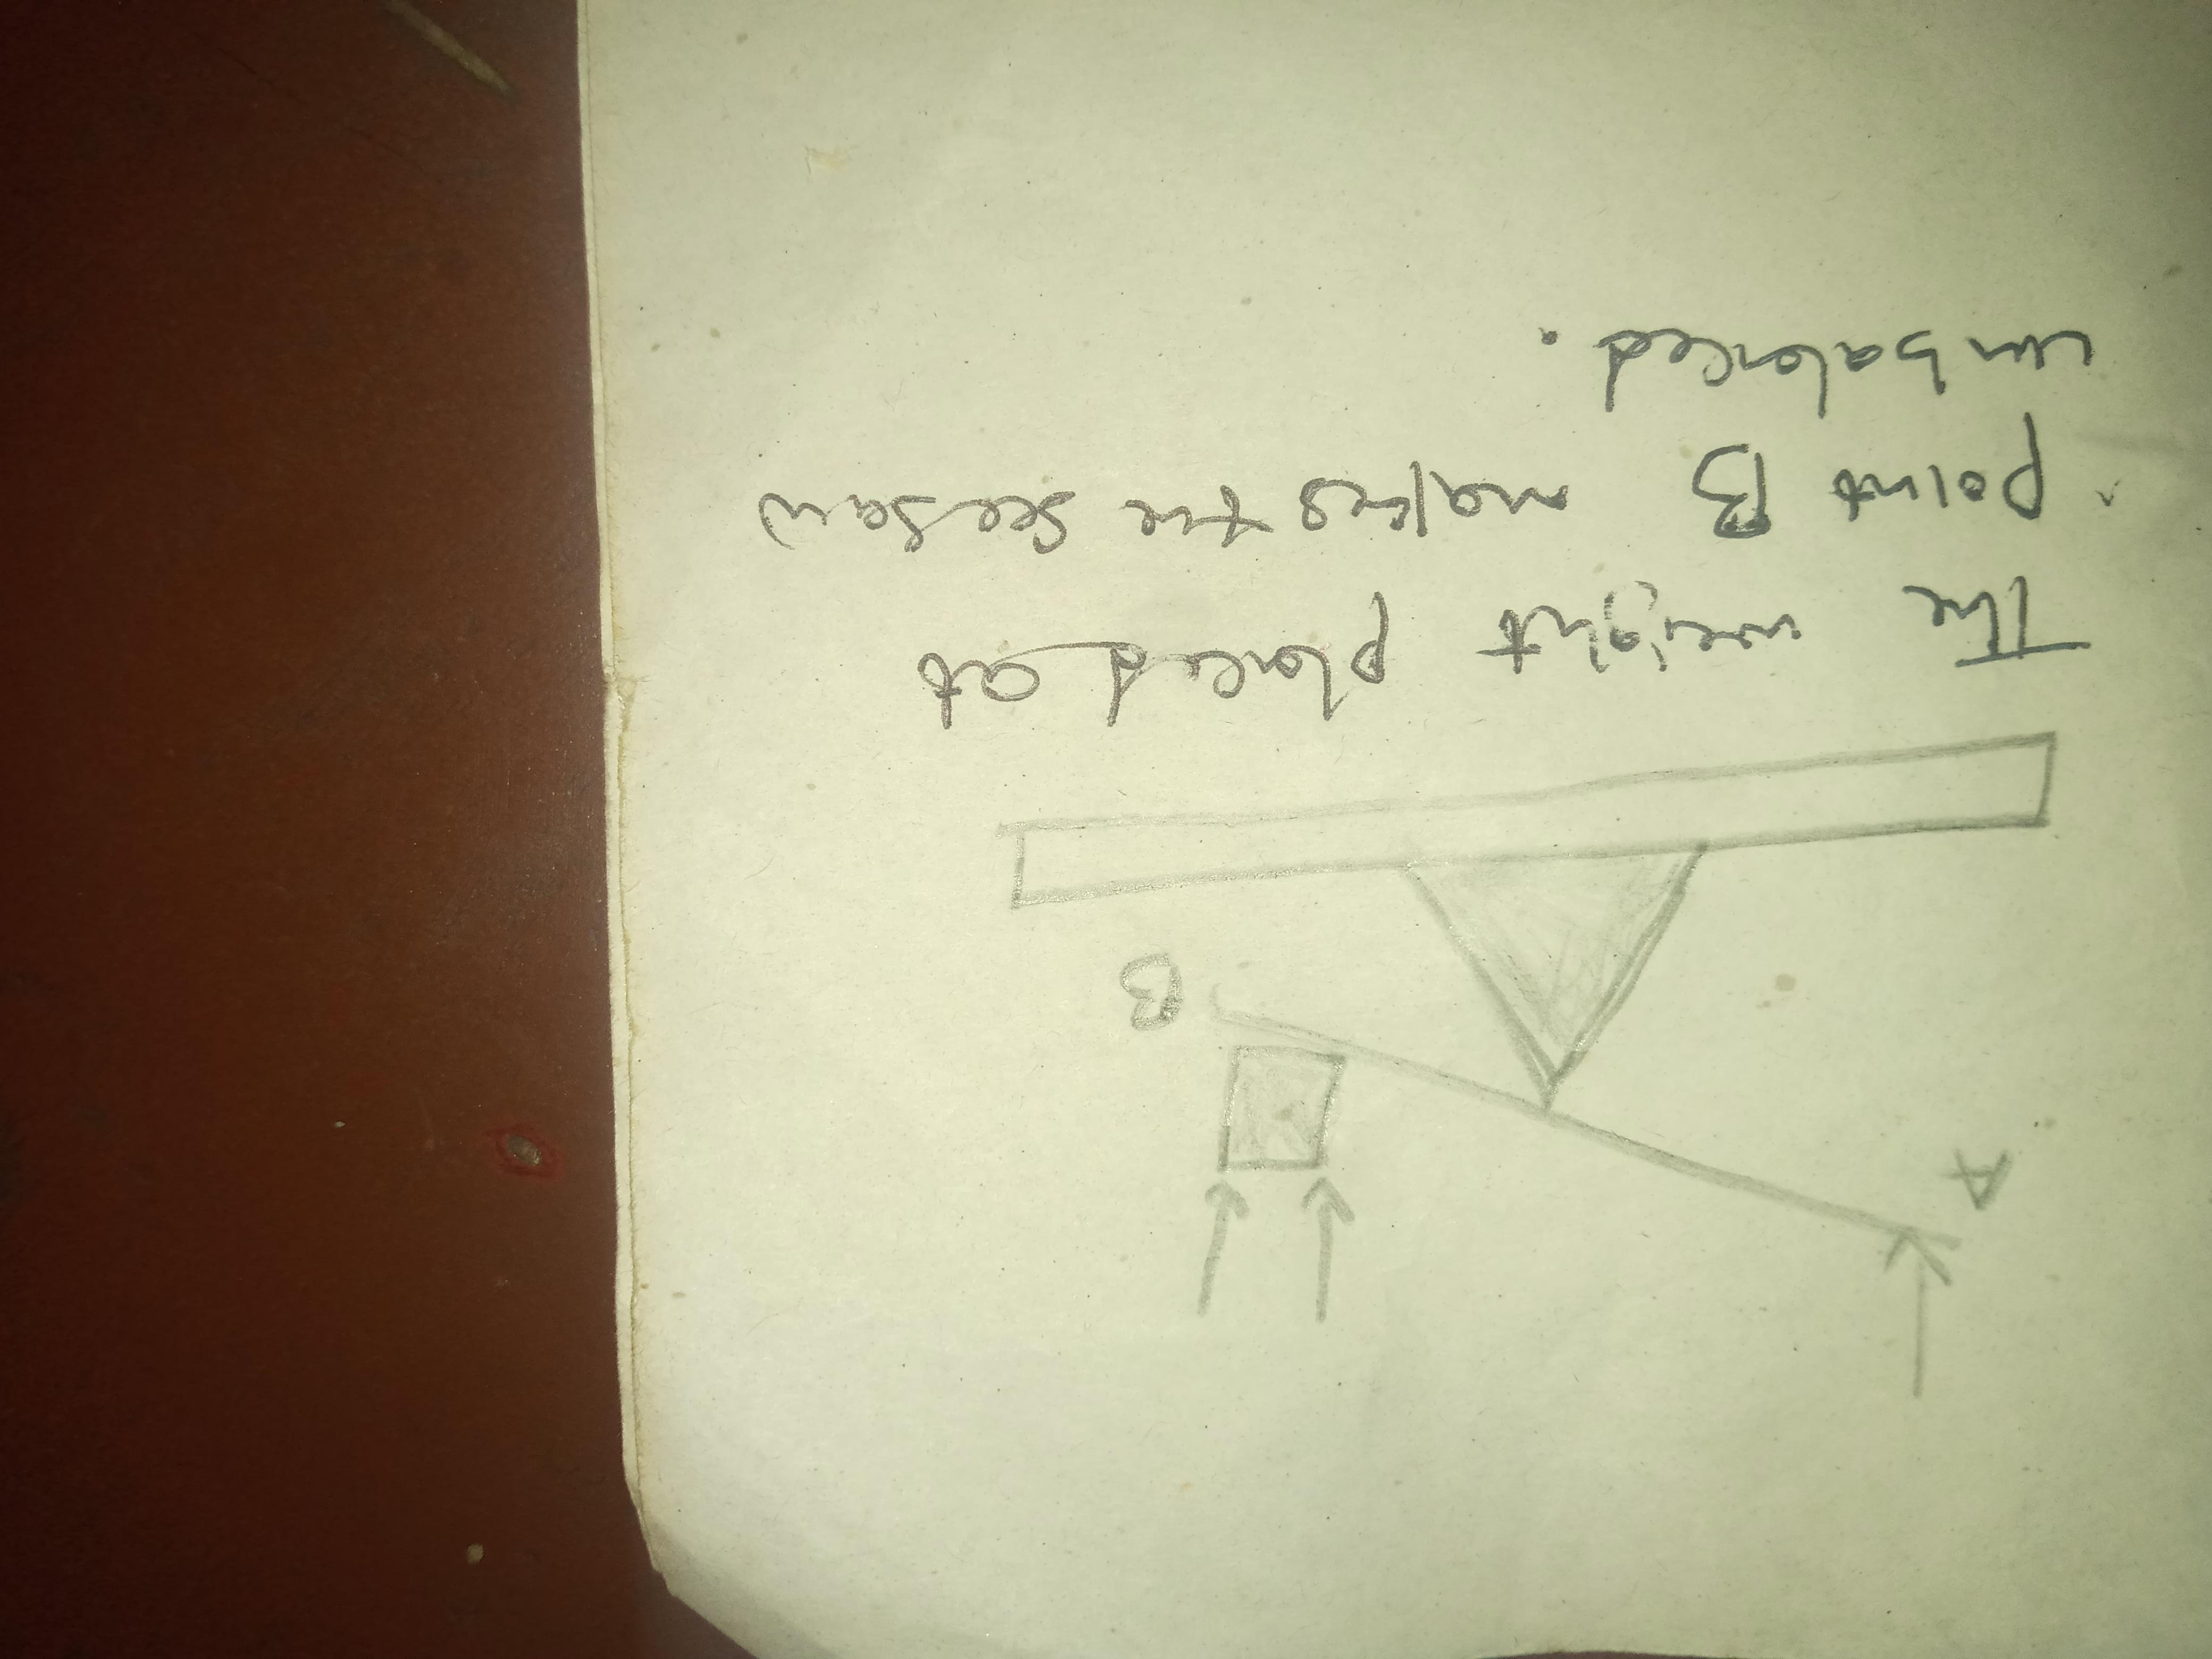 A
B
The weight placed at
point B makes the seesaw
unbalanced.